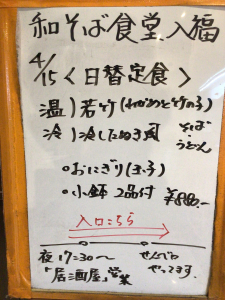 和そば食堂入福
4/15<日替定食>
温)若竹(わかめと竹の子)
冷)冷したぬき風 そば・うどん
・おにぎり(ヨ・子)
・小鉢 2品付 ¥880.-
入口こちら
夜17:30〜 せんべろ
「居酒屋」営業 やってます。